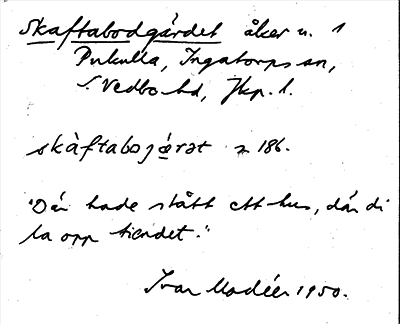 Skaftabodgärdet åker u. 1
Pukulla, Ingatorps sn,
S. Vedbo hd, Jkp. l.
skàftabojárət 2 186.
"Där hade stått ett hus, där di
la opp tiendet."
Ivar Modéer 1950.